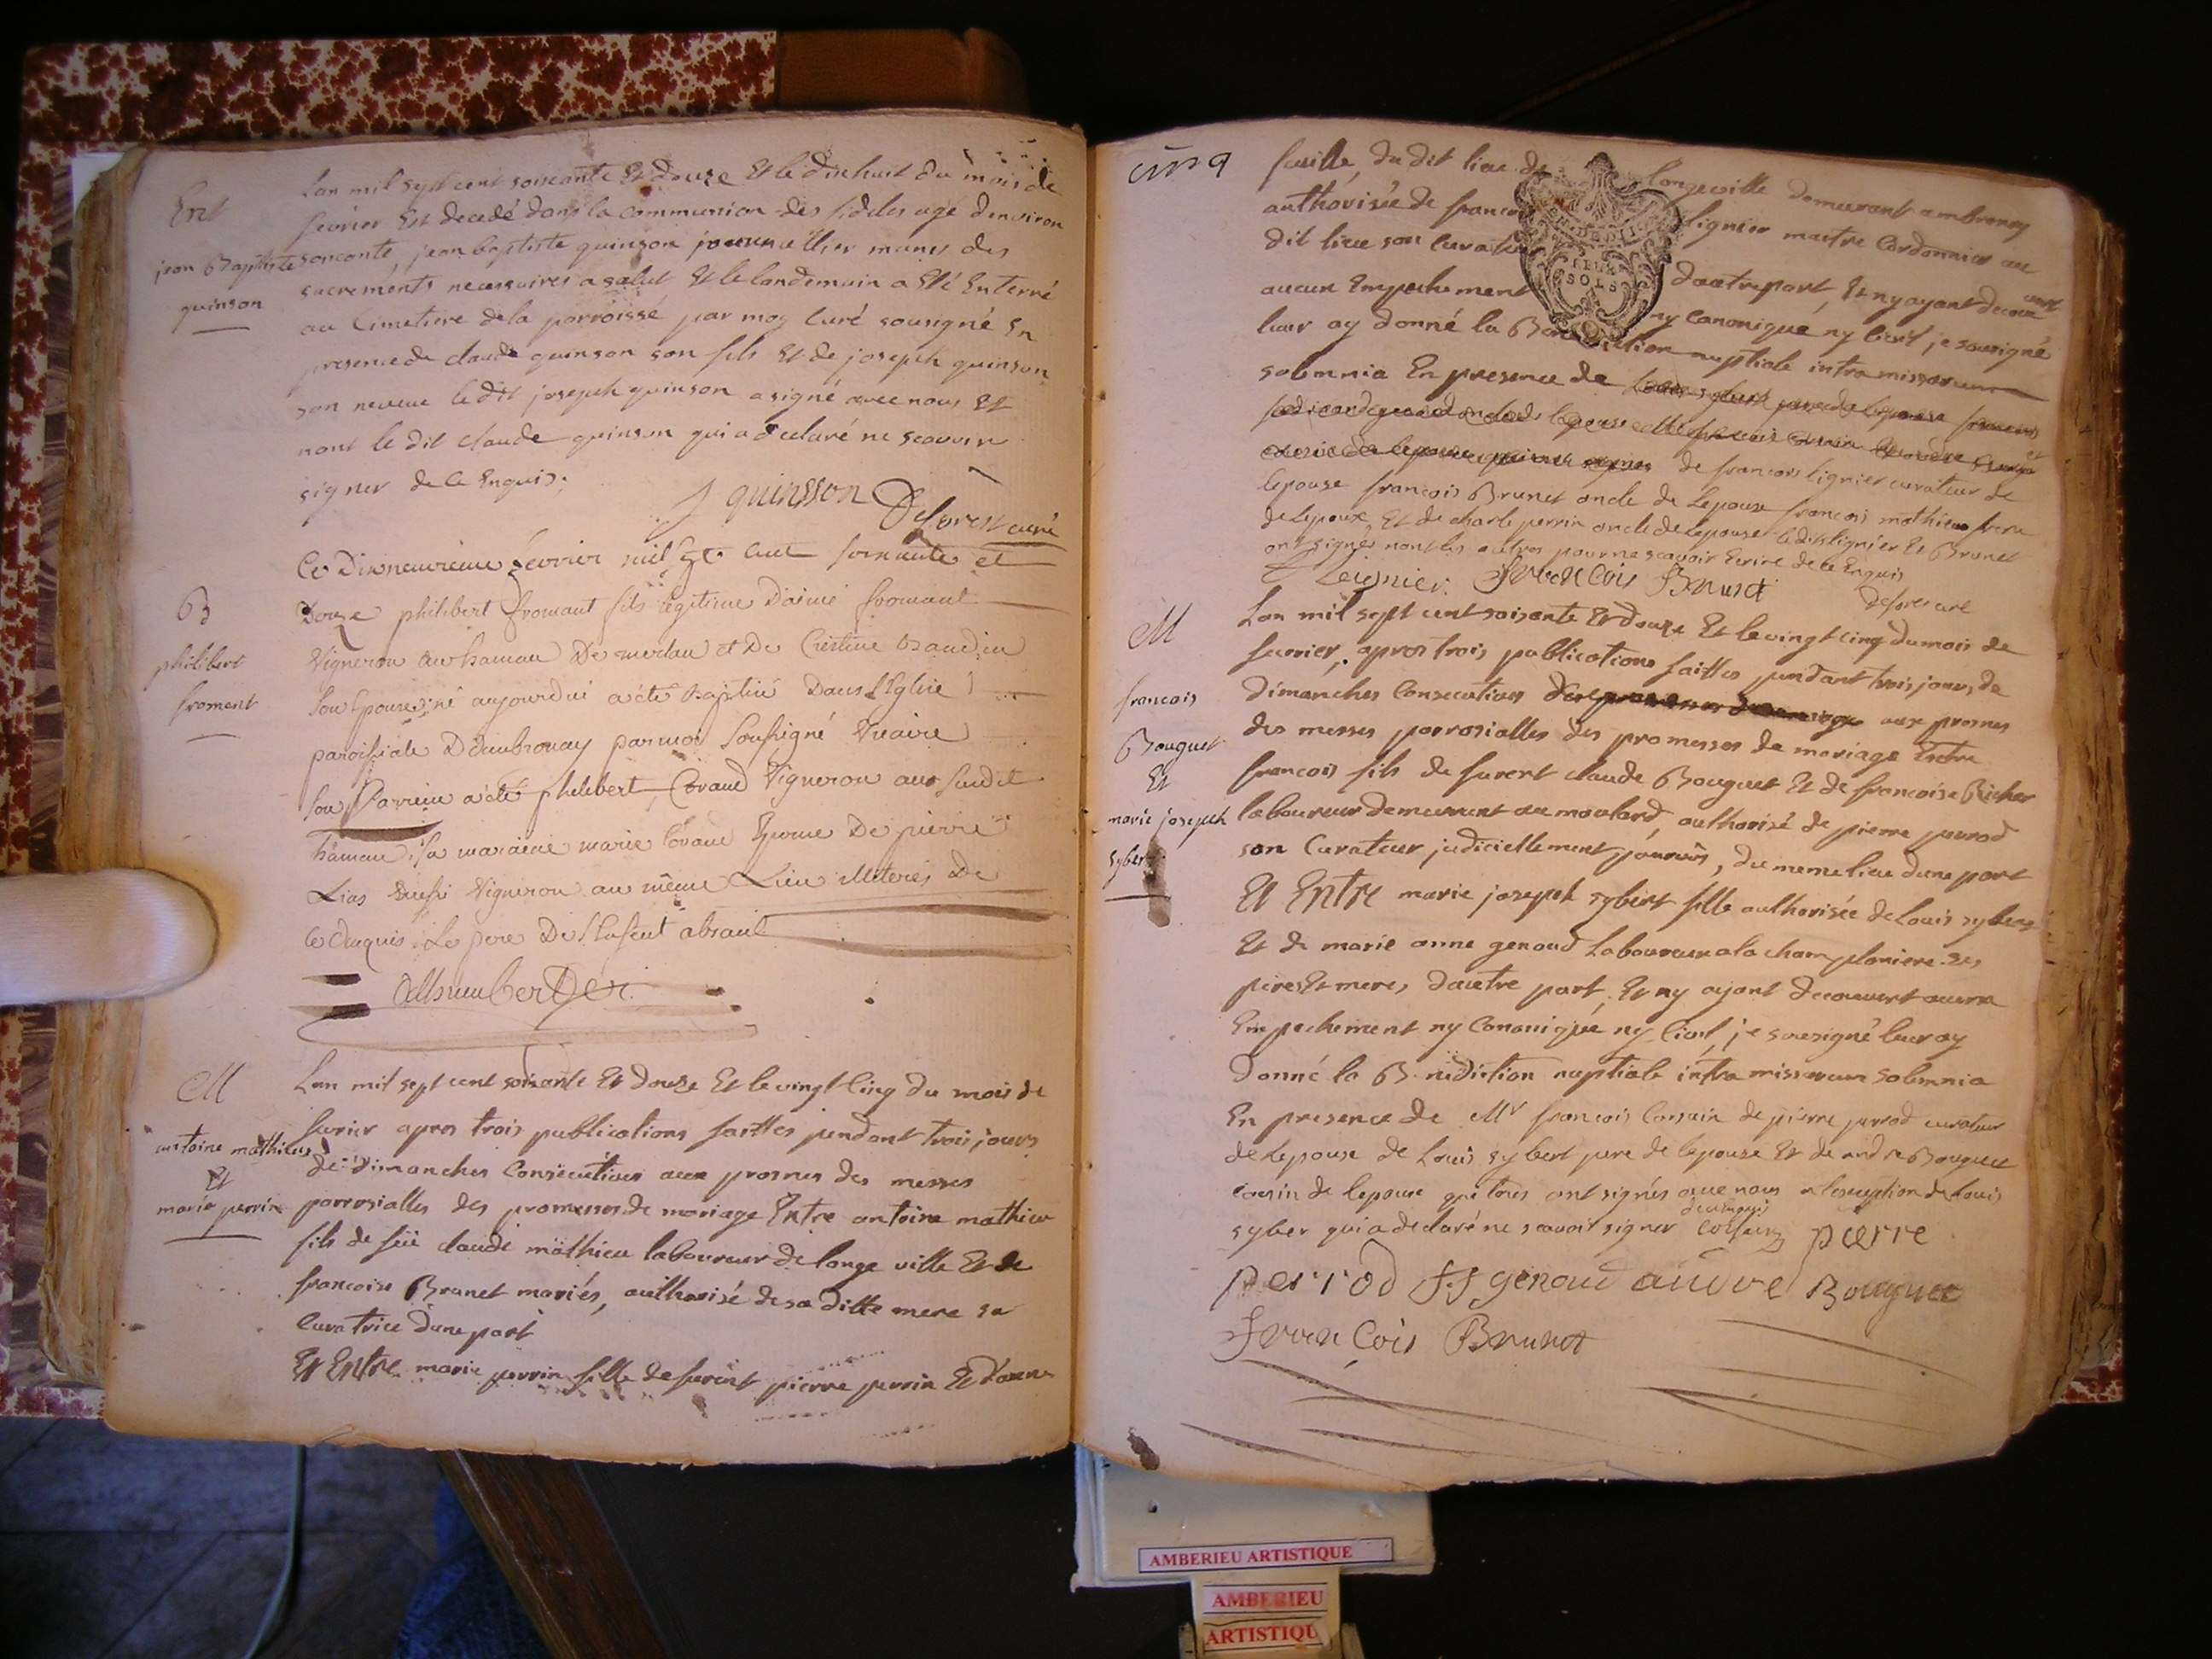 Ent
jean Baptiste
quinson
Lan mil sept cent soixante Et douze Et le dixhuit du mois de
fevrier Est decedé dans la communion des fideles agé denviron
soixante, jean baptiste quinson munis des
sacrements necessaires a salut Et le landemain a Eté Enterré
au Cimetiere de la parroisse par moy Curé sousigné En
presence de claude quinson son fils Et de joseph quinson
son neveue le dit joseph quinson a signé avec nous Et
nont le dit claude quinson qui a declaré ne scavoir
signer de ce Enquis.
J quinsson Deforest curé
B
philibert
froment
Ce Dixneuvieme fevrier mil sept cent soixante et
Douze philibert fromant fils legitime D'aimé fromant
Vigneron au hamau De merlau et De Cristine
Son Epouse; né aujourdui a été Baptisé Dans l'Eglise
paroissiale D'Ambronay par moi soussigné Vicaire
Son Parrein a été philibert Cavand Vigneron au susdit
hameau; Sa maraine marie Cavand Epouse De pierre
Lias aussi Vigneron au même Lieu illiterés De
ce Enquis. Le pere De l'Enfent absent
M
antoine mathieu
Et
marie perrin
Lan mil sept cent soixante Et douze Et le vingt Cinq du mois de
fevrier apres trois publications faittes pendant trois jours
de dimanches Consecutives aux prosnes des messes
parrosialles des promesses de mariage Entre antoine mathieu
fils de feü claude mäthieu laboureur de longe ville Et de
francoise Brunet mariés, authorisé de sa ditte mere sa
Curatrice dune part
Et Entre marie perrin fille de furent pierre perrin Et danne
cinq
du dit lieu de longeville demeurant ambronay
authorisée de francois lignier maitre Cordonnier au
dit lieu son Curateur dautre part, Et ny ayant decouvert
aucun Empechement ny canonique ny Civil, je sousigné
leur ay donné la Benediction nuptiale intra missarum
solemnia En presence de
de francois lignier curateur de
lepouse francois Brunet oncle de lepoux francois mathieu frere
de lepoux, Et de charle perrin oncle de lepouse le dit lignier Et Brunet
ont signés nont les autres pour ne scavoir Ecrire de ce Enquis
Leignier. Francois Brunet
deforest curé
M
francois
Bouguet
Et
marie joseph
syber
Lan mil sept cent soixante Et douze Et le vingt cinq du mois de
fevrier, apres trois publications faittes pendant trois jours de
dimanches Consecutives aux prosnes
des messes parrosialles des promesses de mariage Entre
francois fils de furent claude Bouguet Et de francoise Richer
laboureur demeurant au moulard, authorisé de pierre perrod
son Curateur judiciellement pourvüs, du meme lieu dune part
Et Entre marie joseph sybert fille authorisée de Louis sybert
Et de marie anne genoud Laboureur a la championiere ses
peres Et meres, dautre part, Et ny ayant decouvert aucun
Empechement ny Canonique ny Civil, je sousigné leur ay
donné la Benediction nuptiale intra missarum solemnia
En presence de Mr francois Corsain de pierre perrod curateur
de lepouse de Louis sybert pere de lepouse Et de andre Bouguet
cousin de lepoux qui tous ont signés avec nous a lexception de Louis
syber qui a declaré ne scavoir signer pierre
perrod genoud andre Bouguet
Francois Brunet
AMBERIEU ARTISTIQUE
AMBERIEU
ARTISTIQU